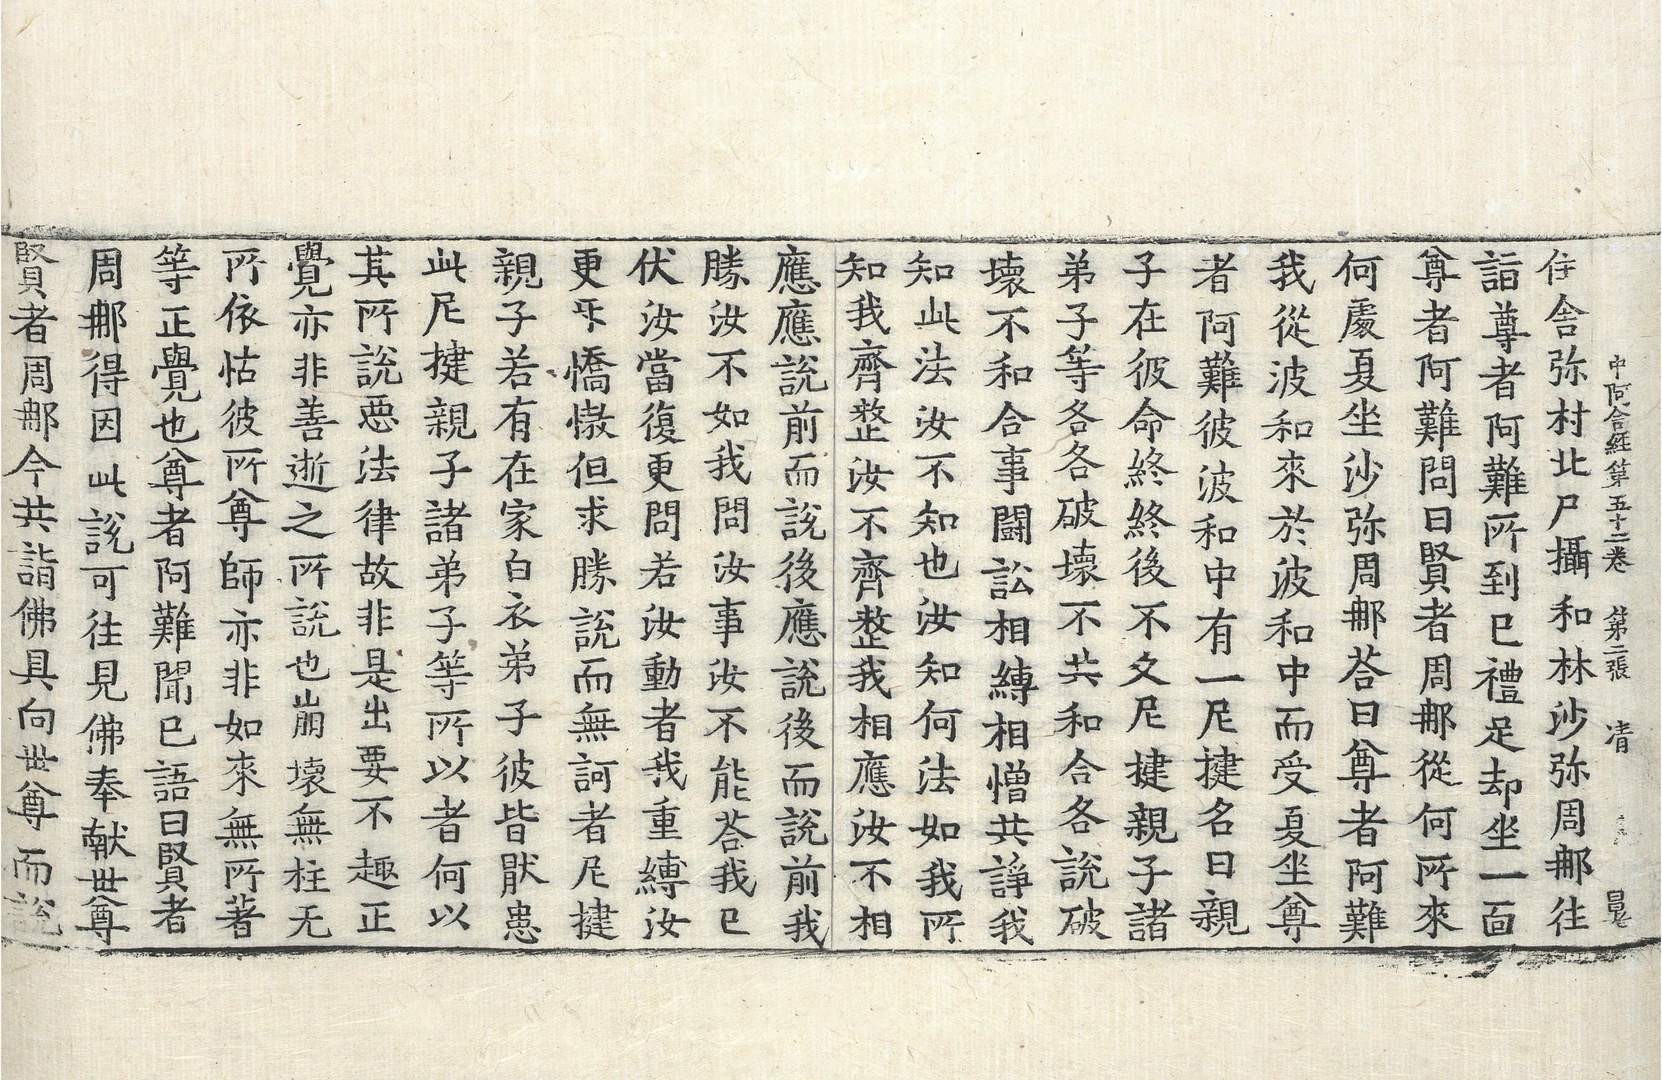 中阿含經第五十二卷 第二張 凊
往舍弥村北尸攝和林沙弥周𨚗往
詣尊者阿難所到已禮足却坐一面
尊者阿難問曰賢者周𨚗從何所來
何處夏坐沙弥周𨚗荅曰尊者阿難
我從波和來於波和中而受夏坐尊
者阿難彼波和中有一尼揵名曰親
子在彼命終終後不久尼揵親子諸
弟子等各各破壞不共和合各說破
壞不和合事鬪訟相縛相憎共諍我
知此法汝不知也汝知何法如我所
知我齊整汝不齊整我相應汝不相
應應說前而說後應說後而說前我
勝汝不如我問汝事汝不能荅我已
伏汝當復更問若汝動者我重縛汝
更㸦憍慠但求勝說而無訶者尼揵
親子若有在家白衣弟子彼皆猒患
此尼揵親子諸弟子等所以者何以
其所說惡法律故非是出要不趣正
覺亦非善逝之所說也崩壞無柱无
所依怙彼所尊師亦非如來無所著
等正覺也尊者阿難聞已語曰賢者
周𨚗得因此說可往見佛奉献世尊
賢者周𨚗今共詣佛具向世尊而說